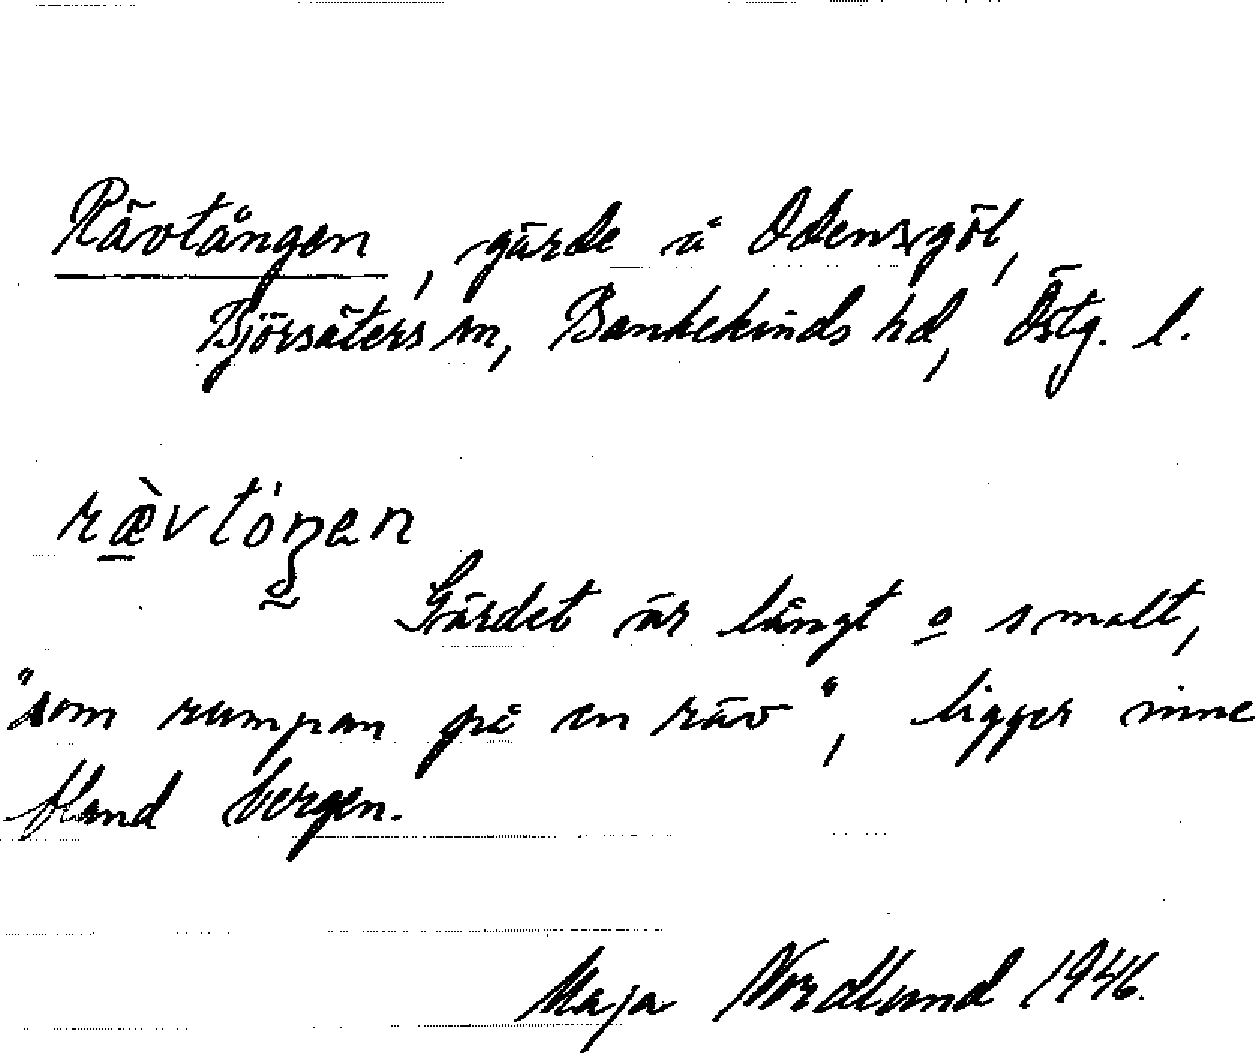 Rävtången, gärde å Odensgöl,
Björsäters sn, Bankekinds hd, Östg. l.
rævtóŋen
Gärdet är långt o smalt,
"som rumpan på en räv", ligger inne
bland bergen.
Maja Nordlund 1946.